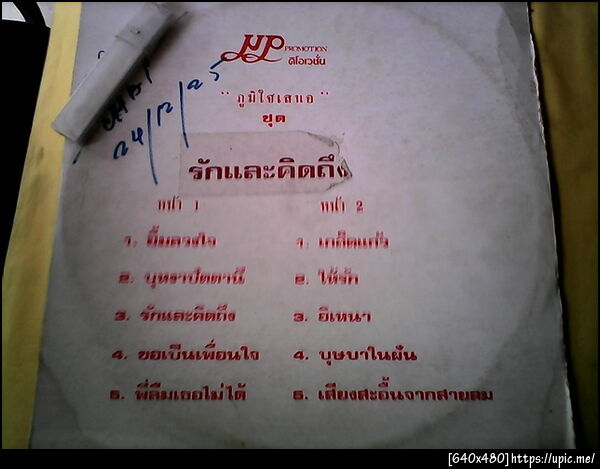 PROMOTION
คีโอเวชั่น
24/12/25
" ภูมิใจเสนอ "
ชุด
รักและคิดถึง
หน้า 1 หน้า 2
1. ยิ้มดวงใจ 1. เกล็ดแก้ว
2. บุหงาปัตตานี 2. ให้รัก
3. รักและคิดถึง 3. อิเหนา
4. ขอเป็นเพื่อนใจ 4. บุษบาในฝัน
5. พี่ลืมเธอไม่ได้ 5. เสียงสะอื้นจากสายลม
[640x480]https://upic.me/